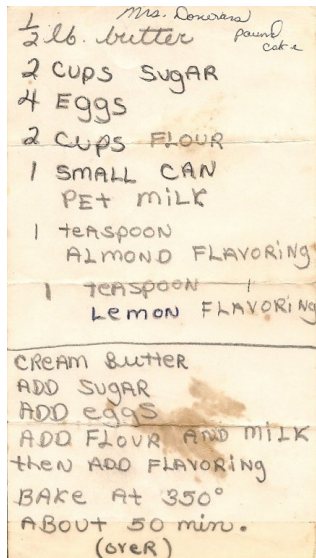 Mrs. Donovans
pound
cake
1/2 lb. butter
2 CUPS SUGAR
4 EGGS
2 CUPS FLOUR
1 SMALL CAN
PET MILK
1 teASPOON
ALMOND FLAVORING
1 teASPOON
LEMON FLAVORING
CREAM ButteR
ADD SUGAR
ADD eggs
ADD FLOUR AND MILK
then ADD FLAVORING
BAKE At 350°
ABOUT 50 min.
(oveR)